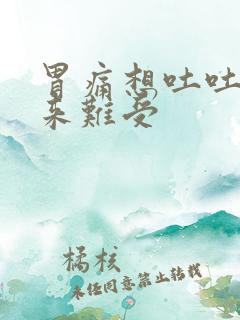 胃痛想吐吐
来難受
橘核
未经同意禁止转载